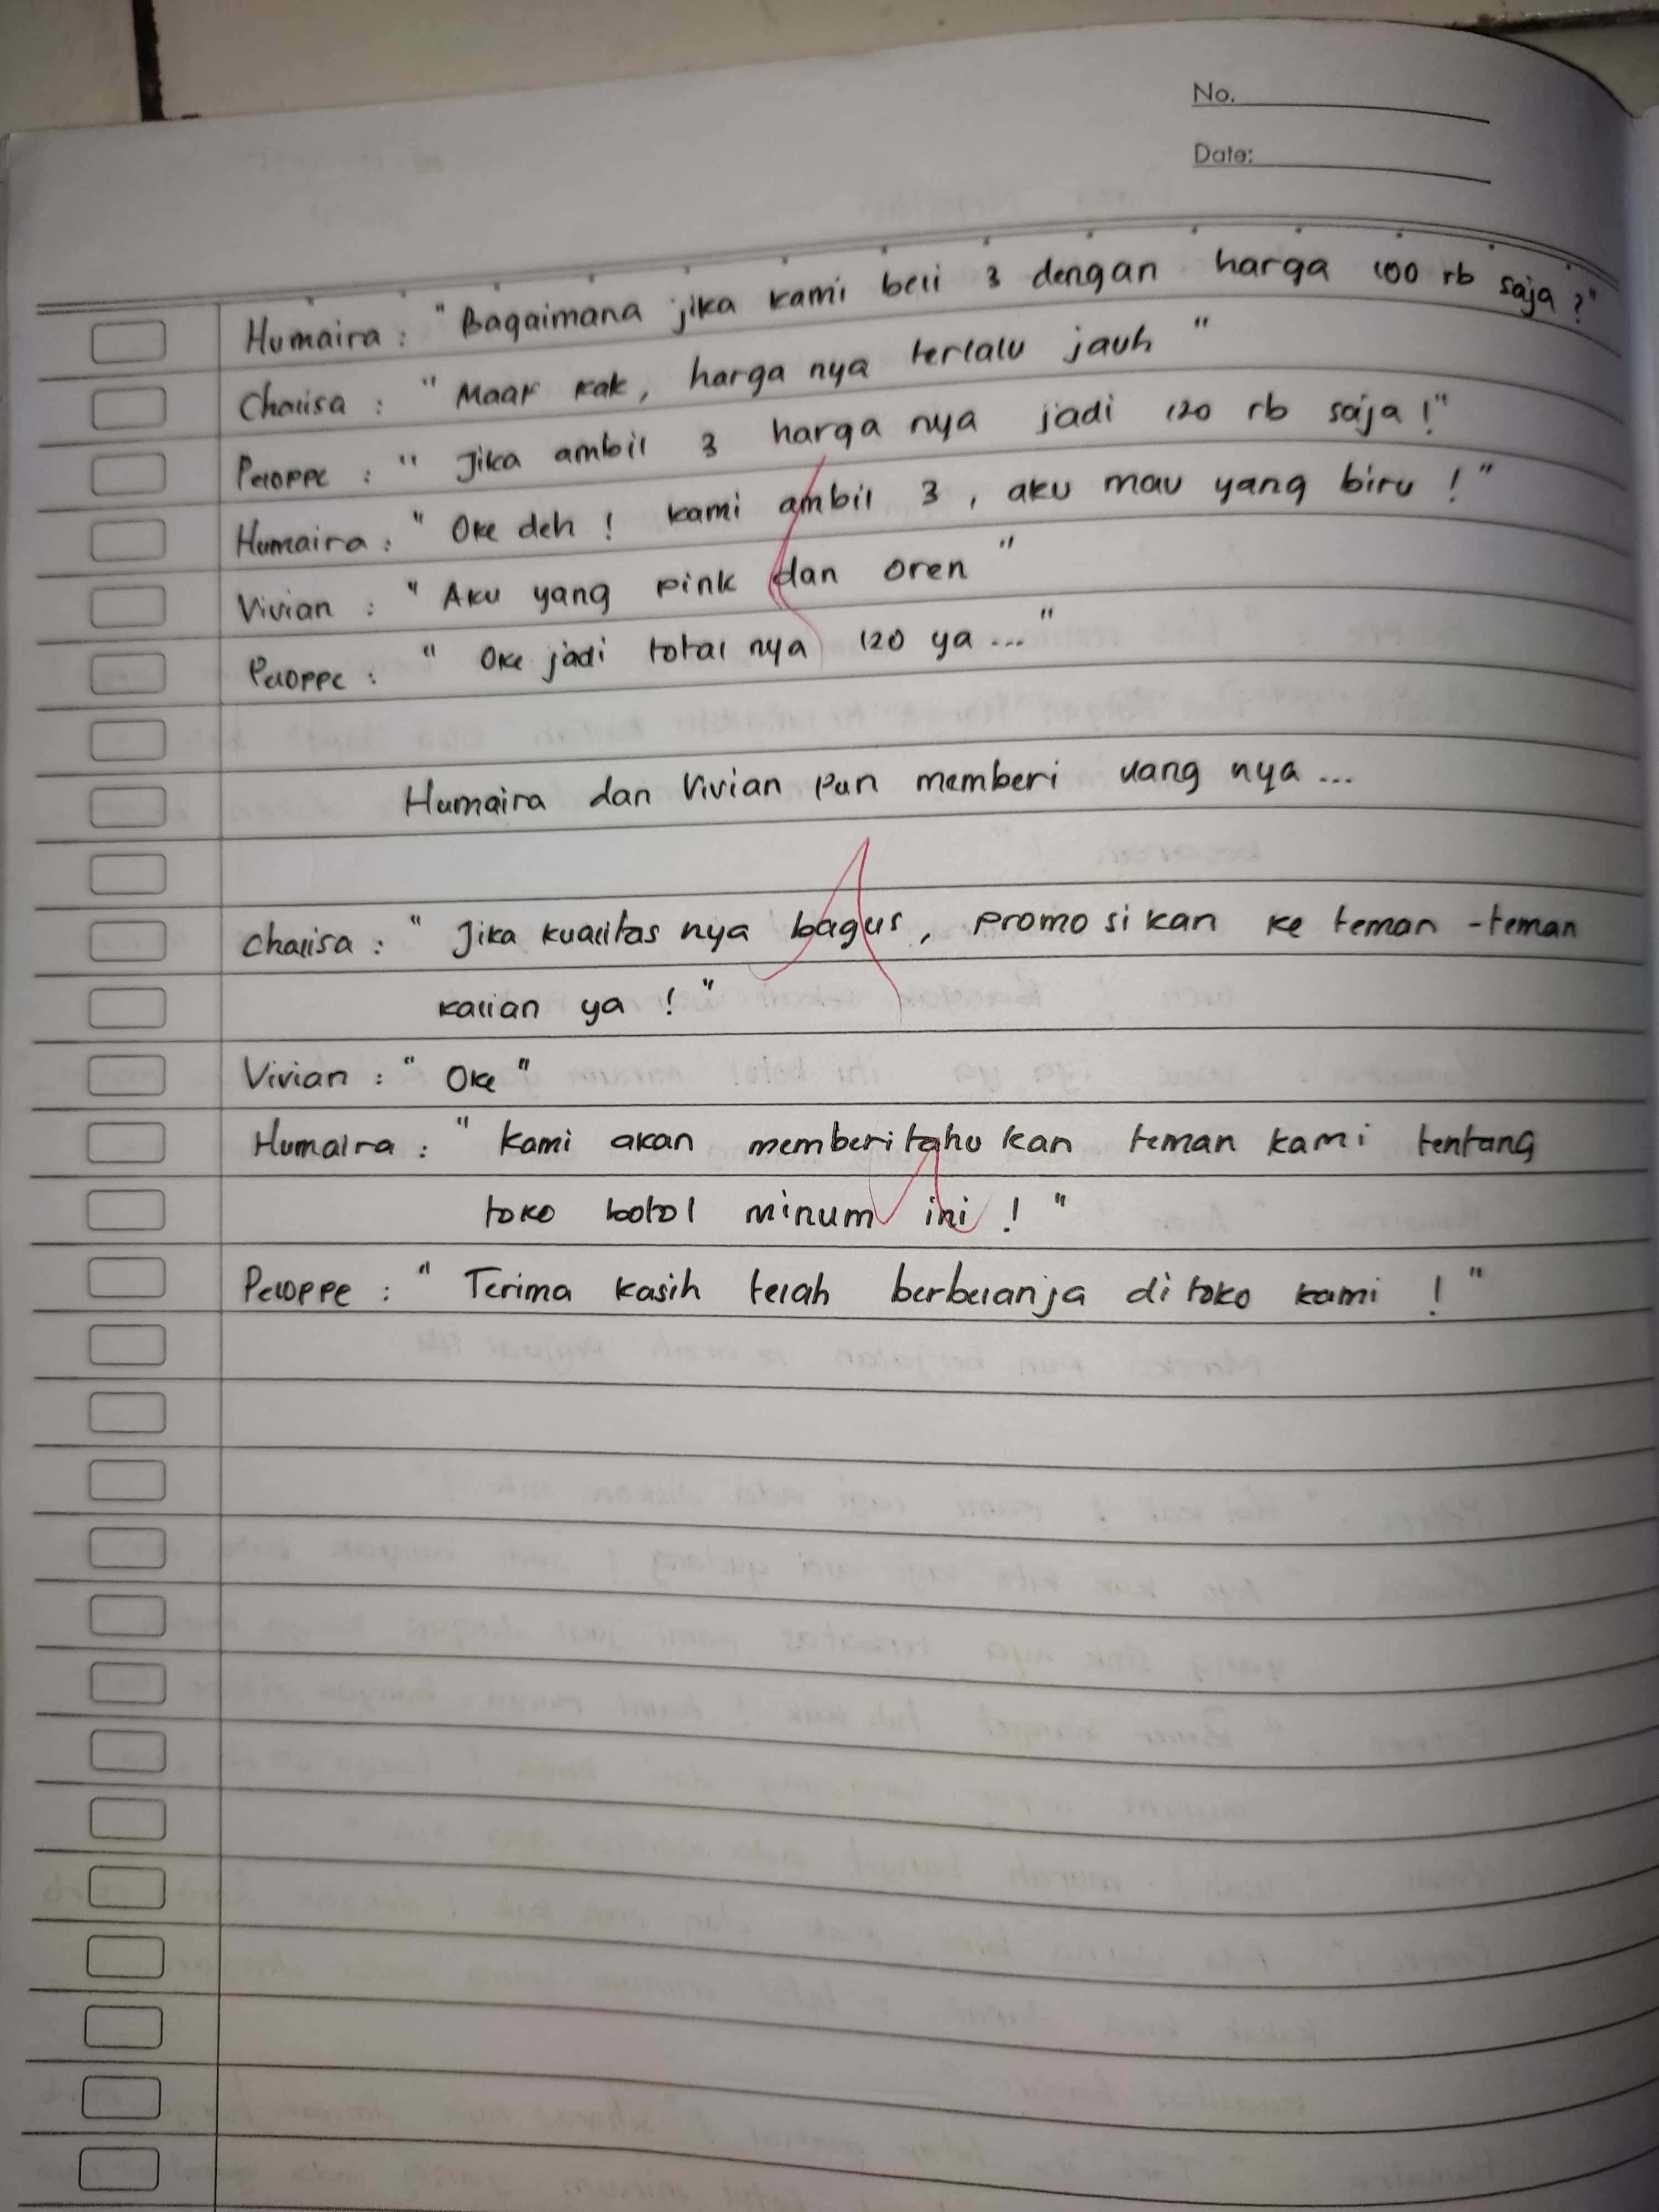 No.
Date:
Humaira : "Bagaimana jika kami beli 3 dengan harga 100 rb saja ?"
Chalisa : "Maaf kak, harga nya terlalu jauh"
Peloppe : "Jika ambil 3 harga nya jadi 120 rb saja !"
Humaira : "Oke deh ! kami ambil 3 , aku mau yang biru !"
Vivian : "Aku yang pink dan oren"
Peloppe : "Oke jadi total nya 120 ya ..."
Humaira dan Vivian pun memberi uang nya ...
Chalisa : "Jika kualitas nya bagus, promosikan ke teman -teman
kalian ya ! "
Vivian : "Oke"
Humaira : "Kami akan memberitahukan teman kami tentang
toko botol minum ini ! "
Peloppe : "Terima kasih telah berbelanja di toko kami ! "